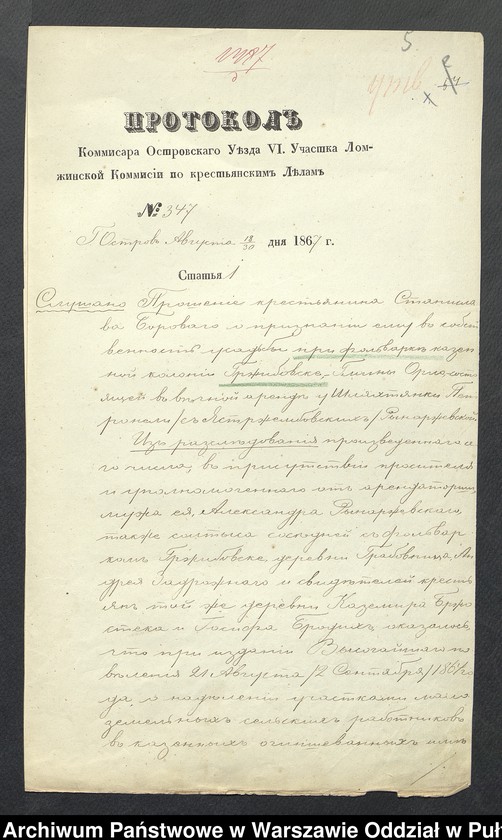 5
ПРОТОКОЛЪ
Коммисара Островскаго Уѣзда VI. Участка Лом-
жинской Коммисіи по крестьянскимъ Дѣламъ
№ 347
Г Островъ Августа 18/30 дня 1867 г.
Статья 1
Слушано Прошеніе крестьянина Станисла
ва Бороваго о признаніи ему въ собст
венность усадьбы при фольваркѣ казен
ной колоніи Гржибовске, Гмины Орло, состо
ящей въ вѣчной арендѣ у Шляхтянки Пет
ронели /съ Ястржембскихъ/ Рынаржевской
Изъ разслѣдованія произведеннаго се
го числа, въ присутствіи просителя
и уполномоченнаго отъ арендаторши,
мужа ея, Александра Рынаржевскаго,
также солтыса сосѣдней съ фольвар
комъ Гржибовске деревни Грабовница, Ан
дрея и свидѣтелей кресть
янъ той же деревни Каземира
и оказалось,
что при изданіи Высочайшаго по
велѣнія 21 Августа /2 Сентября/ 1867 го
да, о надѣленіи участками мало
земельныхъ сельскихъ работниковъ
въ казенныхъ очиншеванныхъ или
Archiwum Państwowe w Warszawie Oddział w Puł